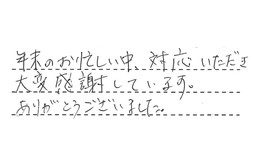 年末のお忙しい中、対応いただき
大変感謝しています。
ありがとうございました。